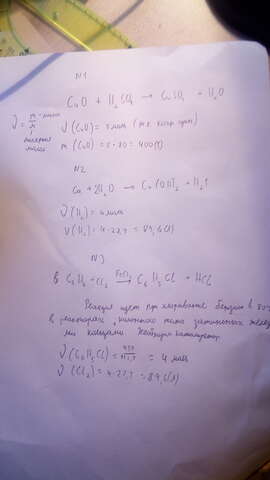 N1
CuO + H₂SO₄ → CuSO₄ + H₂O
ν = m/M - масса
молярная масса
ν (CuO) = 5 моль
m (CuO) = 5 · 80 = 400 (г)
N2
Ca + 2H₂O → Ca(OH)₂ + H₂↑
ν (H₂) = 4 моль
V (H₂) = 4 · 22,4 = 89,6 (л)
N3
C₆H₆ + Cl₂ → C₆H₅Cl + HCl
Реакция идет при хлорировании бензола в
в реакторах, типа
кольцами катализатор
ν (C₆H₅Cl) = = 4 моль
(Cl₂) = 4 · 22,4 = 89,6 (л)